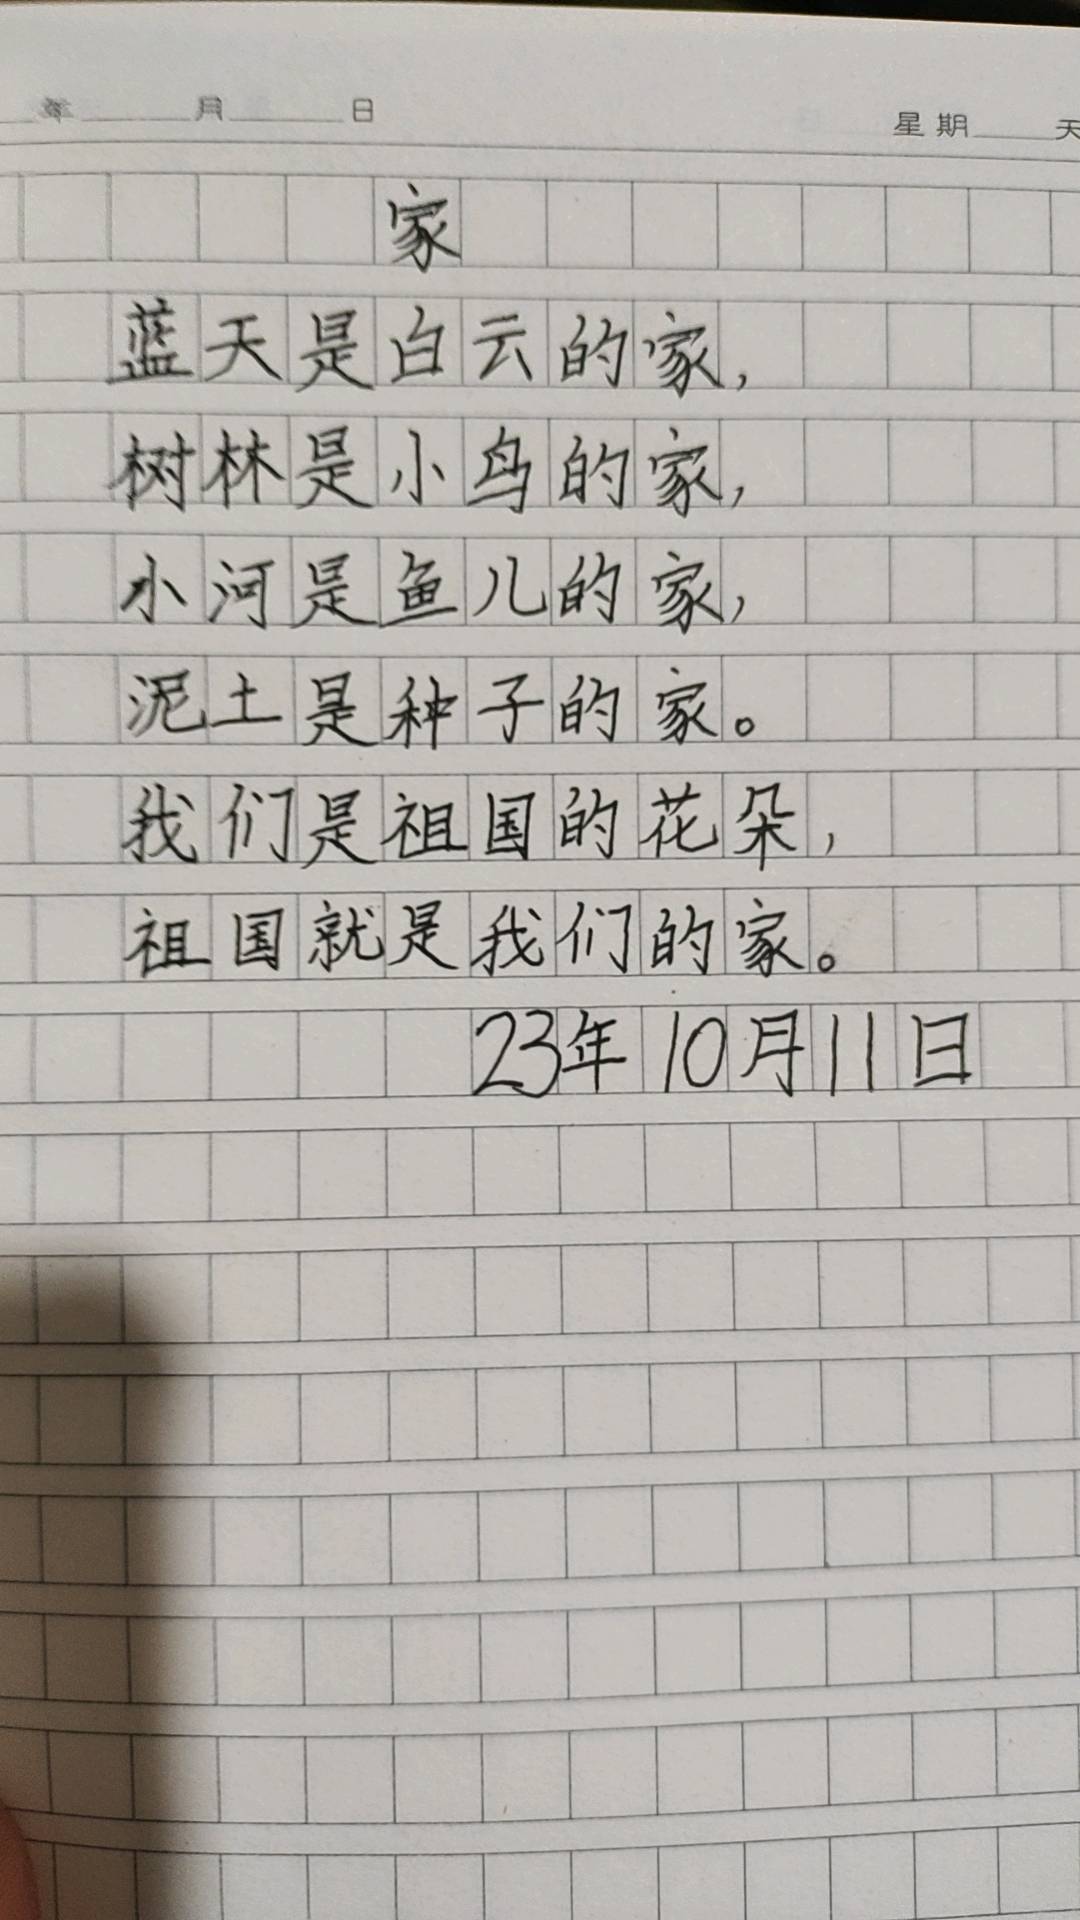 年 月 日 星期 天
家
蓝天是白云的家，
树林是小鸟的家，
小河是鱼儿的家，
泥土是种子的家。
我们是祖国的花朵，
祖国就是我们的家。
23年10月11日